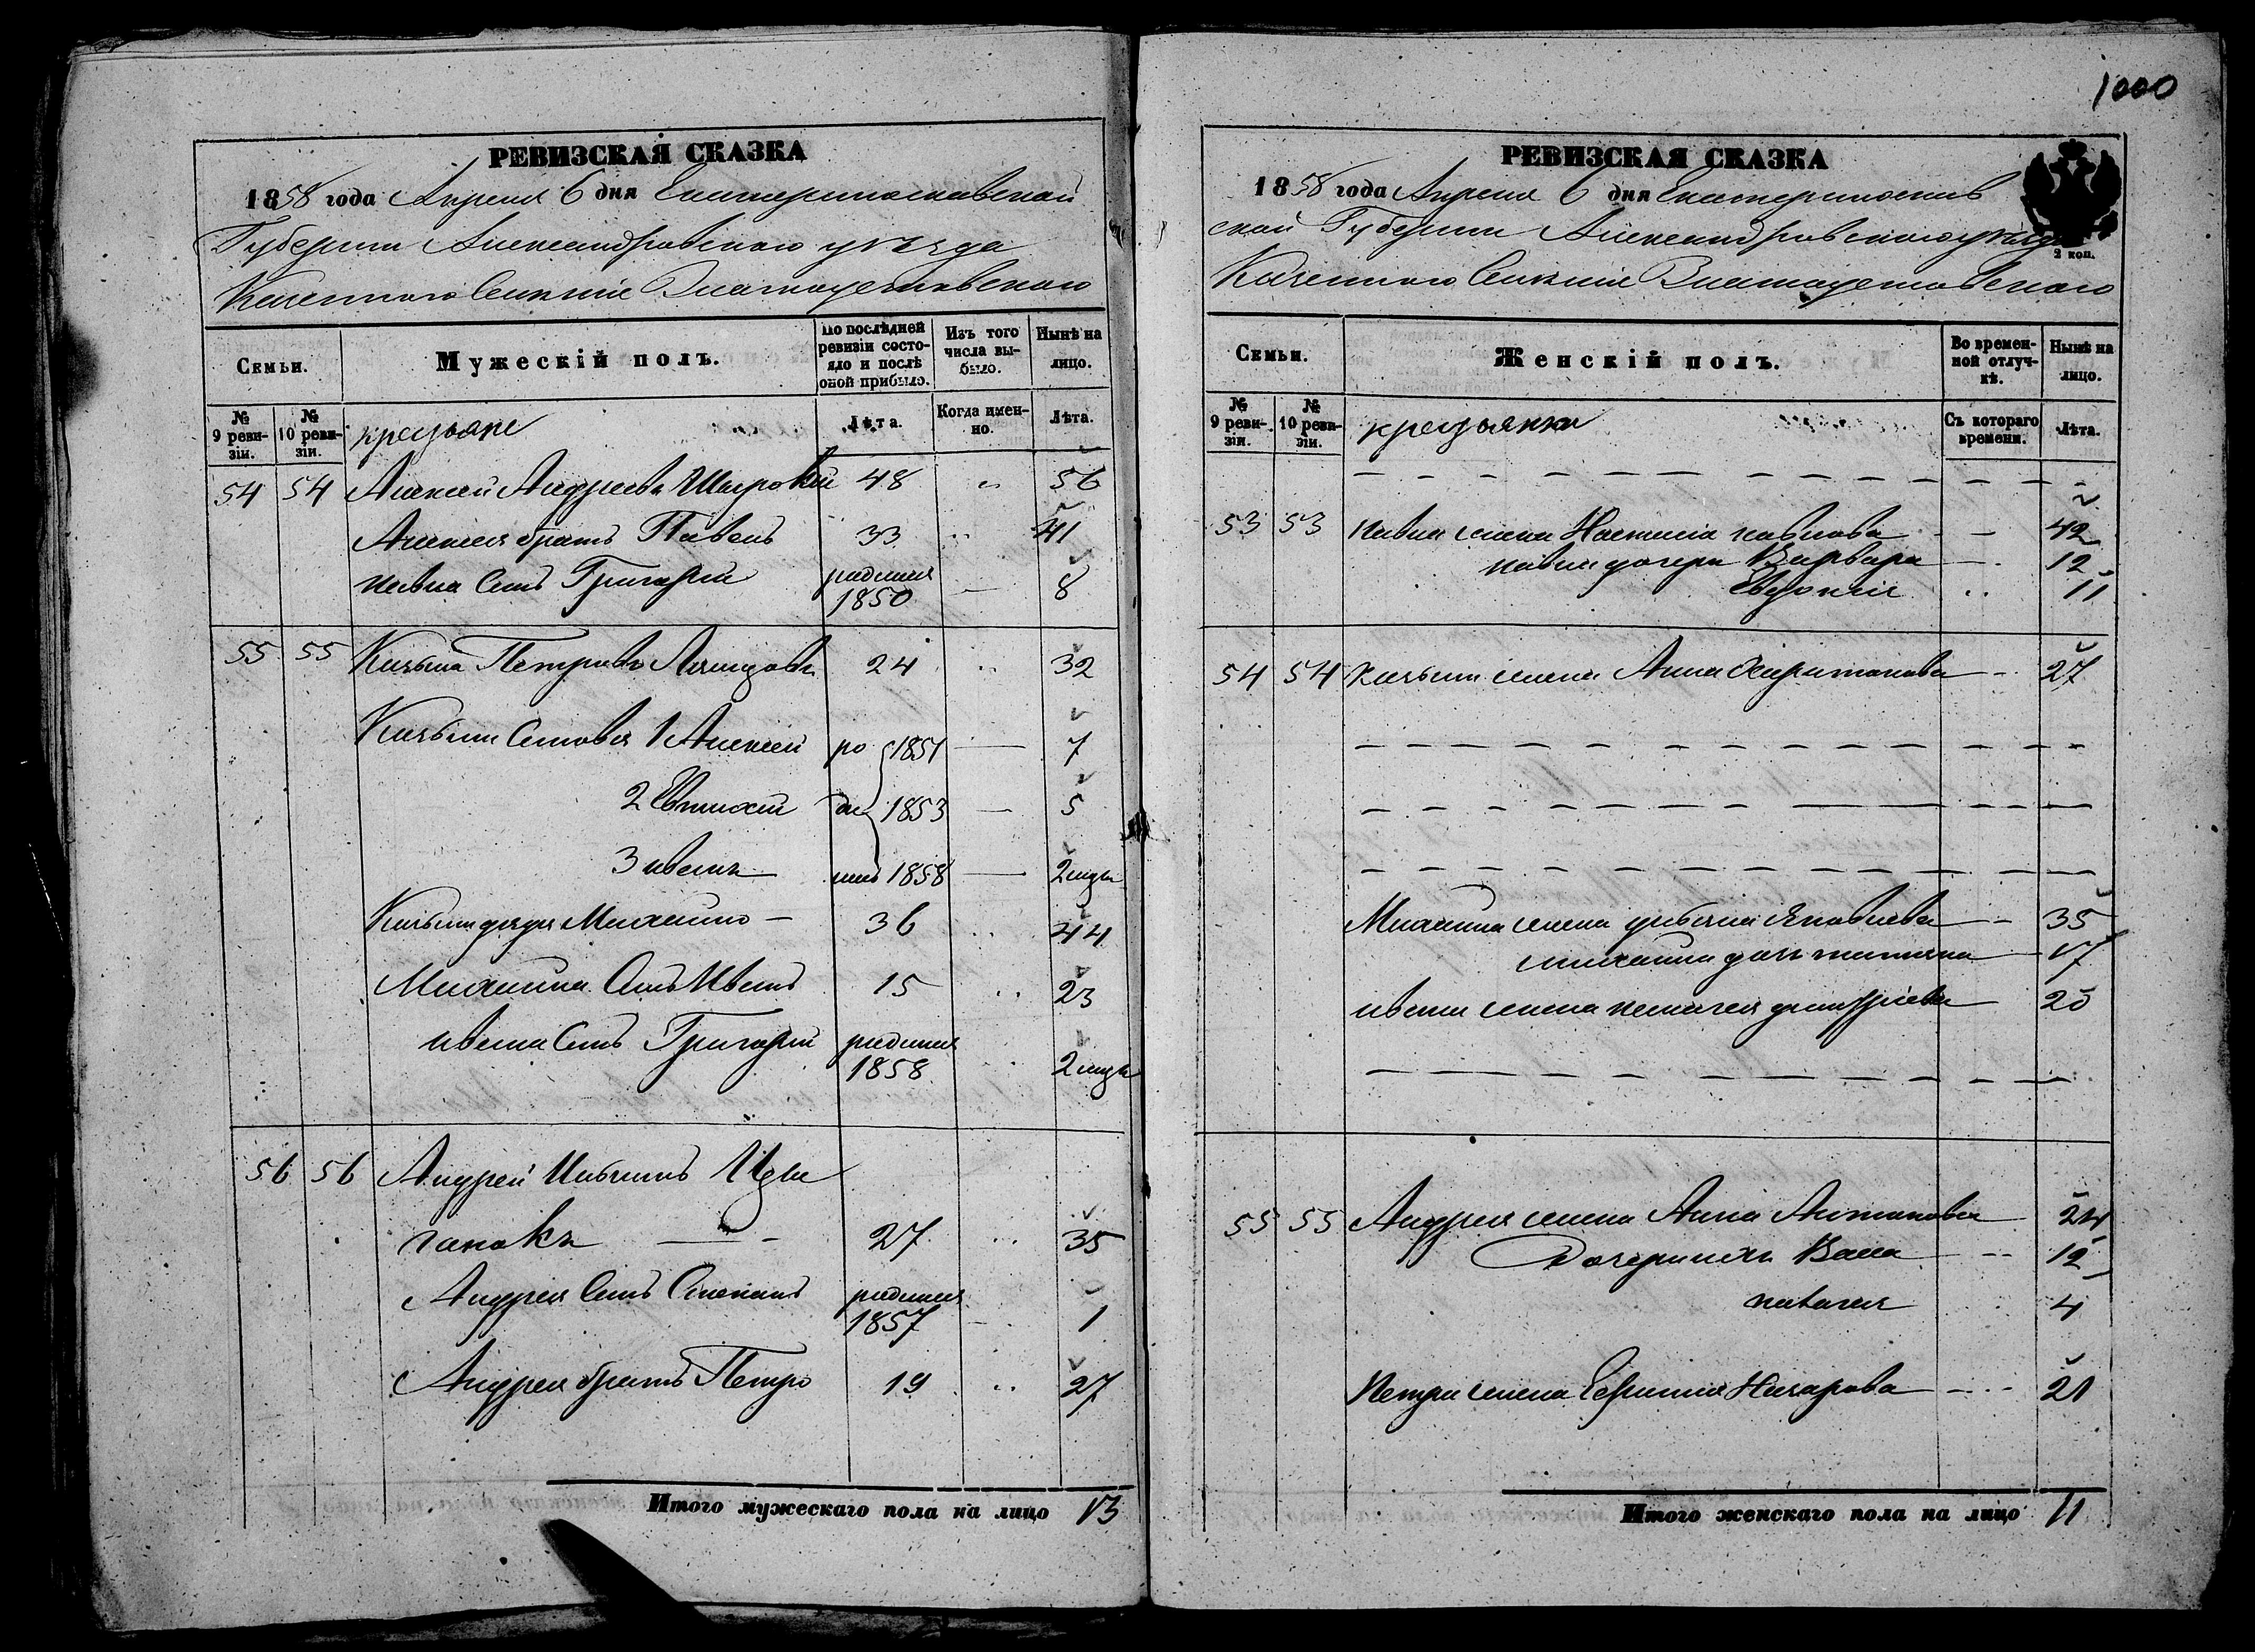 1000
РЕВИЗСКАЯ СКАЗКА
1858 года Апреля 6 дня Екатеринославской
Губернии Александровского уезда
Казенного Селения
Семьи.
Мужескій полъ.
По послѣдней ревизіи состояло и послѣ оной прибыло.
Изъ того числа выбыло.
Нынѣ на лицо.
№ 9 ревизіи.
№ 10 ревизіи.
крестьяне
Лѣта.
Когда именно.
Лѣта.
54 54 Алексей Андреевъ 48 56
Алексея братъ Павелъ 33 41
Павла Сынъ Григорій родился 1850 8
55 55 Кузьма Петровъ 24 32
Кузьмы Сыновья 1 Алексей ро 1851 7
2 ди 1853 5
3 Иванъ лись 1858 2 мца
Кузьмы дядя Михайло 36 44
Михайла Сынъ Иванъ 15 23
Ивана Сынъ Григорій родился 1858 2 мца
56 56 Андрей
27 35
Андрея Сынъ Степанъ родился 1857 1
Андрея братъ Петро 19 27
Итого мужескаго пола на лицо 13
РЕВИЗСКАЯ СКАЗКА
1858 года Апреля 6 дня Екатеринослав
ской Губернии Александровского уезда
Казенного Селения
2 коп.
Семьи.
Женскій полъ.
Во временной отлучкѣ.
Нынѣ на лицо.
№ 9 ревизіи.
№ 10 ревизіи.
крестьянки
Съ котораго времени.
Лѣта.
53 53 Павла жена Настасія Павлова 42
Павла дочери Варвара 12
Евдокія 11
54 54 Кузьмы жена Анна Харитонова 27
Михайла жена Яковлева 35
Михайла дочь Татьяна 17
Ивана жена Пелагея Дмитріева 20
55 55 Андрея жена Анна Антонова 24
12
Наталия 4
Петра жена Назарова 21
Итого женскаго пола на лицо 11